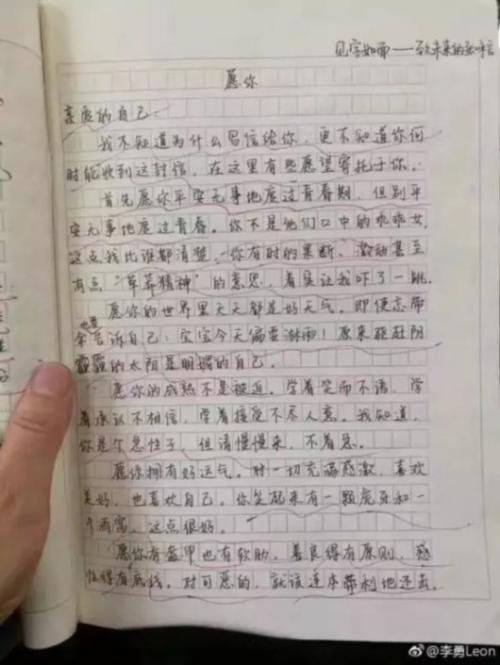 见字如面——致未来的自己的信
愿你
亲爱的自己:
我不知道为什么写信给你,更不知道你何
时能收到这封信。在这里有些愿望寄托于你。
首先愿你平安无事地度过青春期,但别平
安无事地度过青春。你不是他们口中的乖乖女,
这点我比谁都清楚。你有时的果断、激动甚至
有点“草莽精神”的意思,着实让我吓了一跳。
愿你的世界里天天都是好天气。即便忘带
伞也要告诉自己:宝宝今天偏要淋雨!原来能赶阴
霾的太阳是明媚的自己。
愿你的成熟不是被迫。学着笑而不语,学
着承认不相信,学着接受不尽人意。我知道,
你是个急性子,但请慢慢来,不着急。
愿你拥有好运气。对一切充满感激,喜欢
美好,也喜欢自己。你笑起来有一颗虎牙和一
个酒窝,这点很好。
愿你有盔甲也有软肋。善良得有原则,感
性得有底线。对可恶的,就该连本带利地还击。
@李勇Leon